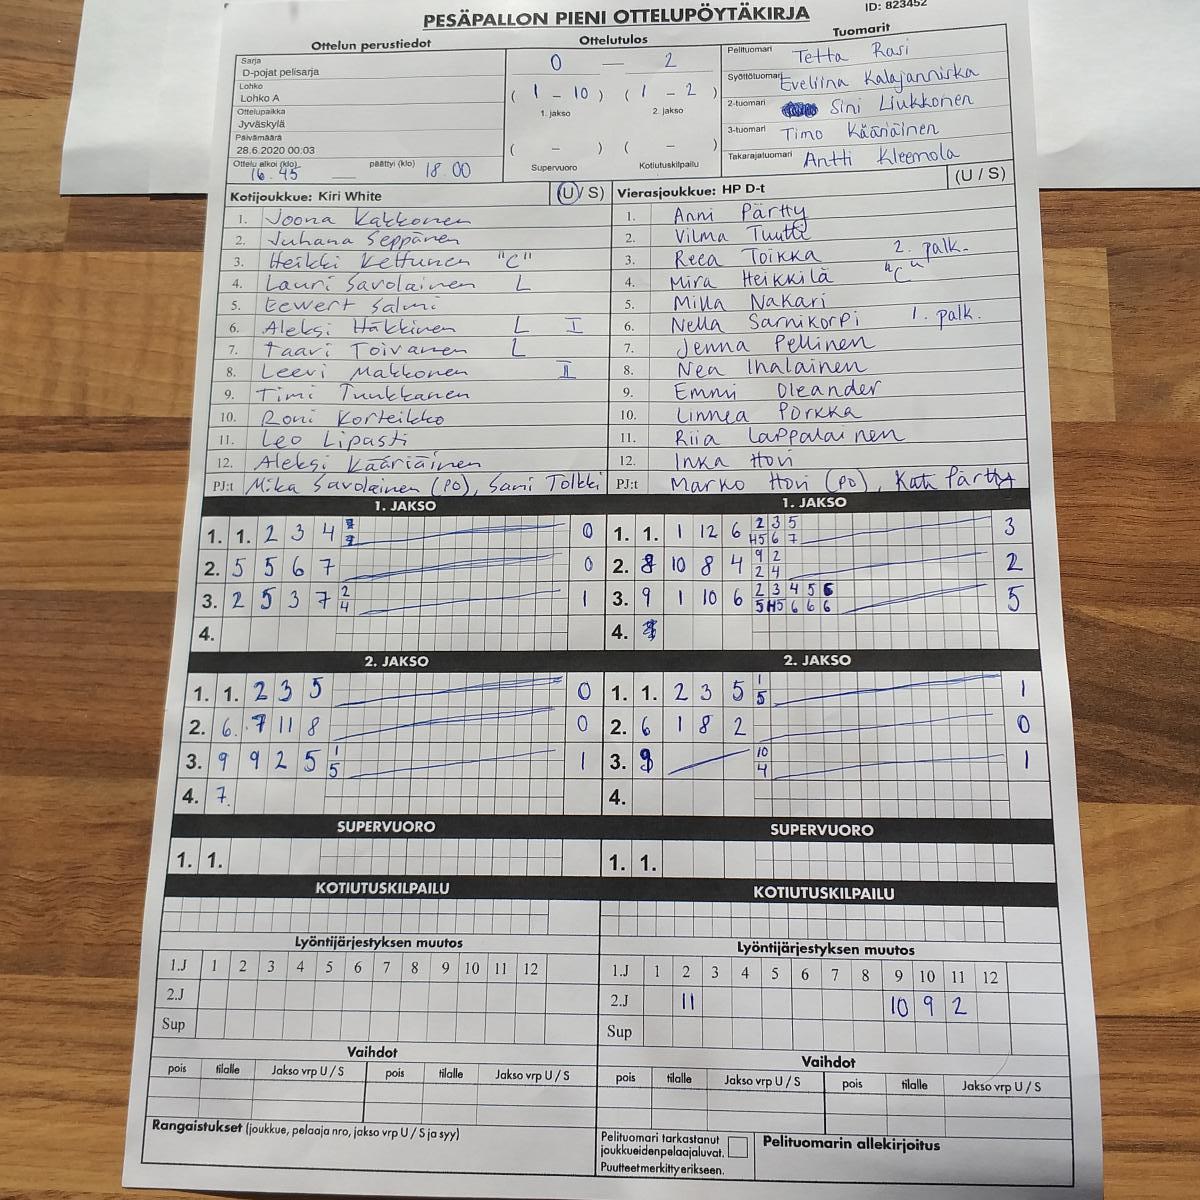 PESÄPALLON PIENI OTTELUPÖYTÄKIRJA
ID: 823452
Ottelun perustiedot
Sarja
D-pojat pelisarja
Lohko
Lohko A
Ottelupaikka
Jyväskylä
Päivämäärä
28.6.2020 00:03
Ottelu alkoi (klo) 16.45 päättyi (klo) 18.00
Ottelutulos
0 — 2
( 1 - 10 ) ( 1 - 2 )
1. jakso 2. jakso
( - ) ( - )
Supervuoro Kotiutuskilpailu
Tuomarit
Pelituomari Tetta Rasi
Syöttötuomari Eveliina Kalajanniska
2-tuomari Sini Liukkonen
3-tuomari Timo Kääriäinen
Takarajatuomari Antti Kleemola
Kotijoukkue: Kiri White (U / S)
1. Joona Kakkonen
2. Juhana Seppänen
3. Heikki Kettunen "C"
4. Lauri Savolainen L
5. Eewert Salmi
6. Aleksi Häkkinen L I
7. Taavi Toivanen L
8. Leevi Makkonen II
9. Timi Tuukkanen
10. Roni Korteikko
11. Leo Lipasti
12. Aleksi Kääriäinen
PJ:t Mika Savolainen (PO), Sami Tolkki
Vierasjoukkue: HP D-t (U / S)
1. Anni Pärtty
2. Vilma Tuutti
3. Reea Toikka 2. palk.
4. Mira Heikkilä "C"
5. Milla Nakari
6. Nella Sarnikorpi 1. palk.
7. Jenna Pellinen
8. Nea Ihalainen
9. Emmi Oleander
10. Linnea Porkka
11. Riia Lappalainen
12. Inka Hovi
PJ:t Marko Hovi (PO), Kati Pärtty
1. JAKSO
1. 1. 2 3 4 0
2. 5 5 6 7 0
3. 2 5 3 7 2 4 1
4.
1. JAKSO
1. 1. 1 12 6 2 3 5 H5 6 7 3
2. 8 10 8 4 9 2 2 4 2
3. 9 1 10 6 2 3 4 5 6 5 H5 6 6 6 5
4.
2. JAKSO
1. 1. 2 3 5 0
2. 6. 7 11 8 0
3. 9 9 2 5 1 5 1
4. 7.
2. JAKSO
1. 1. 2 3 5 1 5 1
2. 6 1 8 2 0
3. 9 10 4 1
4.
SUPERVUORO
1. 1.
SUPERVUORO
1. 1.
KOTIUTUSKILPAILU
KOTIUTUSKILPAILU
Lyöntijärjestyksen muutos
1.J 1 2 3 4 5 6 7 8 9 10 11 12
2.J
Sup
Lyöntijärjestyksen muutos
1.J 1 2 3 4 5 6 7 8 9 10 11 12
2.J 11 10 9 2
Sup
Vaihdot
pois tilalle Jakso vrp U / S pois tilalle Jakso vrp U / S
Vaihdot
pois tilalle Jakso vrp U / S pois tilalle Jakso vrp U / S
Rangaistukset (joukkue, pelaaja nro, jakso vrp U / S ja syy)
Pelituomari tarkastanut
joukkueidenpelaajaluvat.
Puutteetmerkittyerikseen.
Pelituomarin allekirjoitus